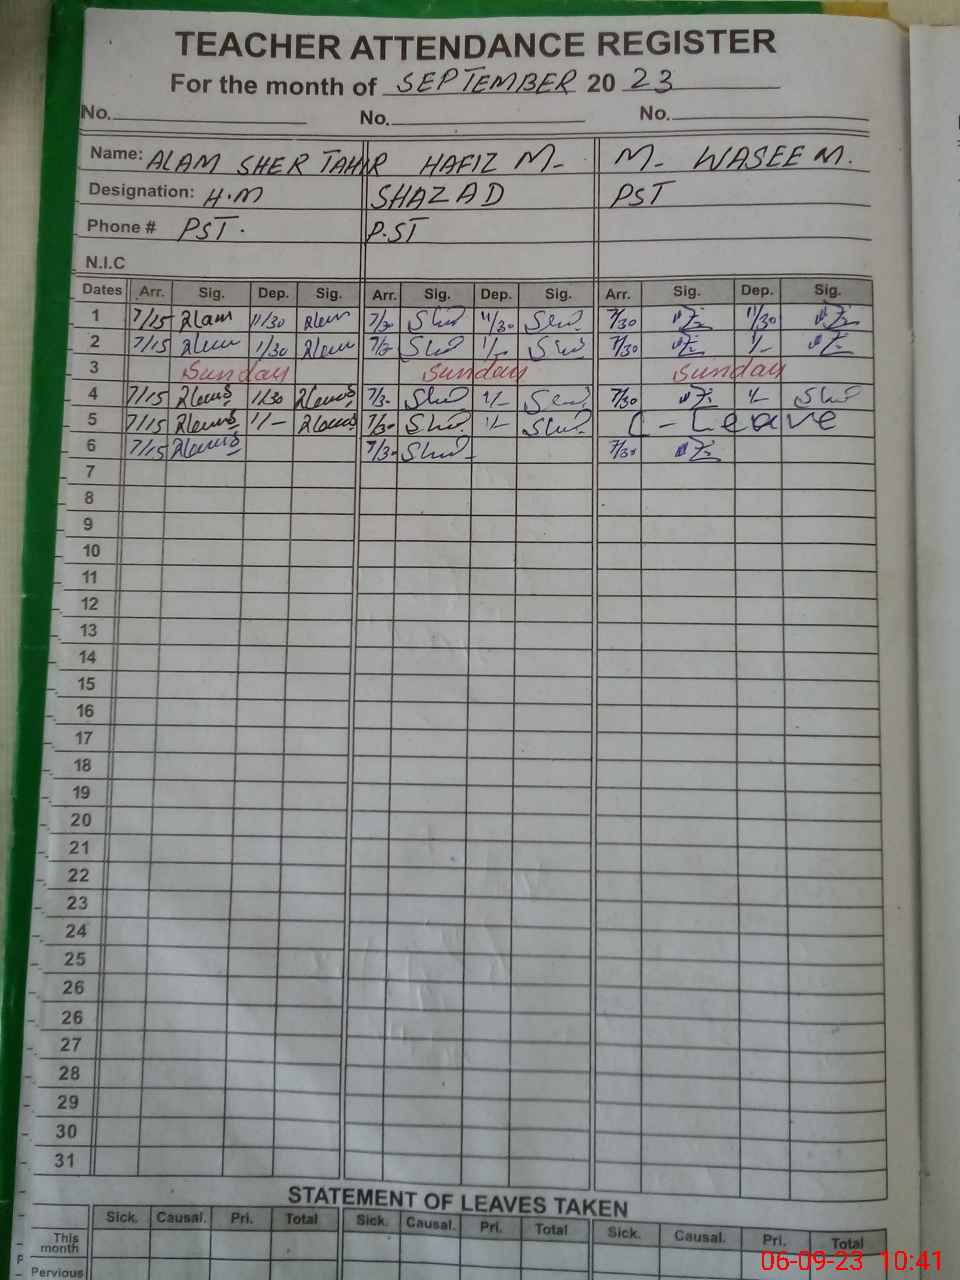 TEACHER ATTENDANCE REGISTER
For the month of SEPTEMBER 20 23
No. No. No.
Name: ALAM SHER TAHIR HAFIZ M- M- WASEEM.
Designation: H.M SHAZAD PST
Phone # PST. P.ST
N.I.C
Dates Arr. Sig. Dep. Sig. Arr. Sig. Dep. Sig. Arr. Sig. Dep. Sig.
1 7/15 11/30 7/30 11/30 7/30 11/30
2 7/15 1/30 1/- 7/30 1/-
3 Sunday Sunday Sunday
4 7/15 1/30 7/3- 1/- 7/30 1/-
5 7/15 1/- 7/30 1/- C-Leave
6 7/15 7/30 7/30
7
8
9
10
11
12
13
14
15
16
17
18
19
20
21
22
23
24
25
26
26
27
28
29
30
31
STATEMENT OF LEAVES TAKEN
Sick. Causal. Pri. Total Sick. Causal. Pri. Total Sick. Causal. Pri. Total
This
month
Pervious
06-09-23 10:41